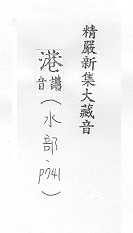 精嚴新集大藏音
港 講音（水部、p741）